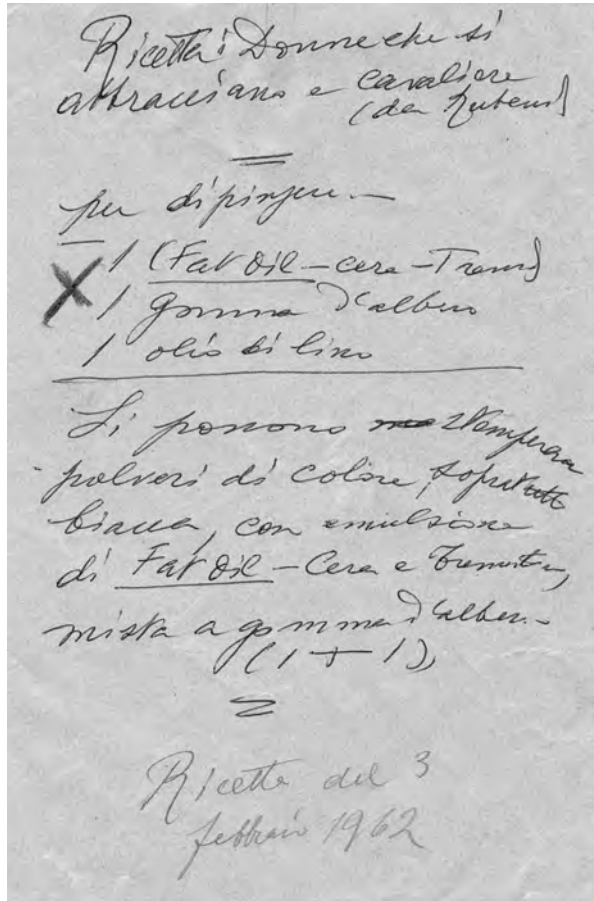 Ricetta: Donne che si
abbracciano e cavaliere
(da Rubens)
per dipingere.—
1 (Fat Oil — cera — Trem)
X 1 gomma d'albero
1 olio di lino
Si possono stemperare
polveri di colore, soprattutto
biacca, con emulsione
di Fat Oil — Cera e
mista a gomma d'albero.—
(1 + 1),
Ricetta del 3
febbraio 1962